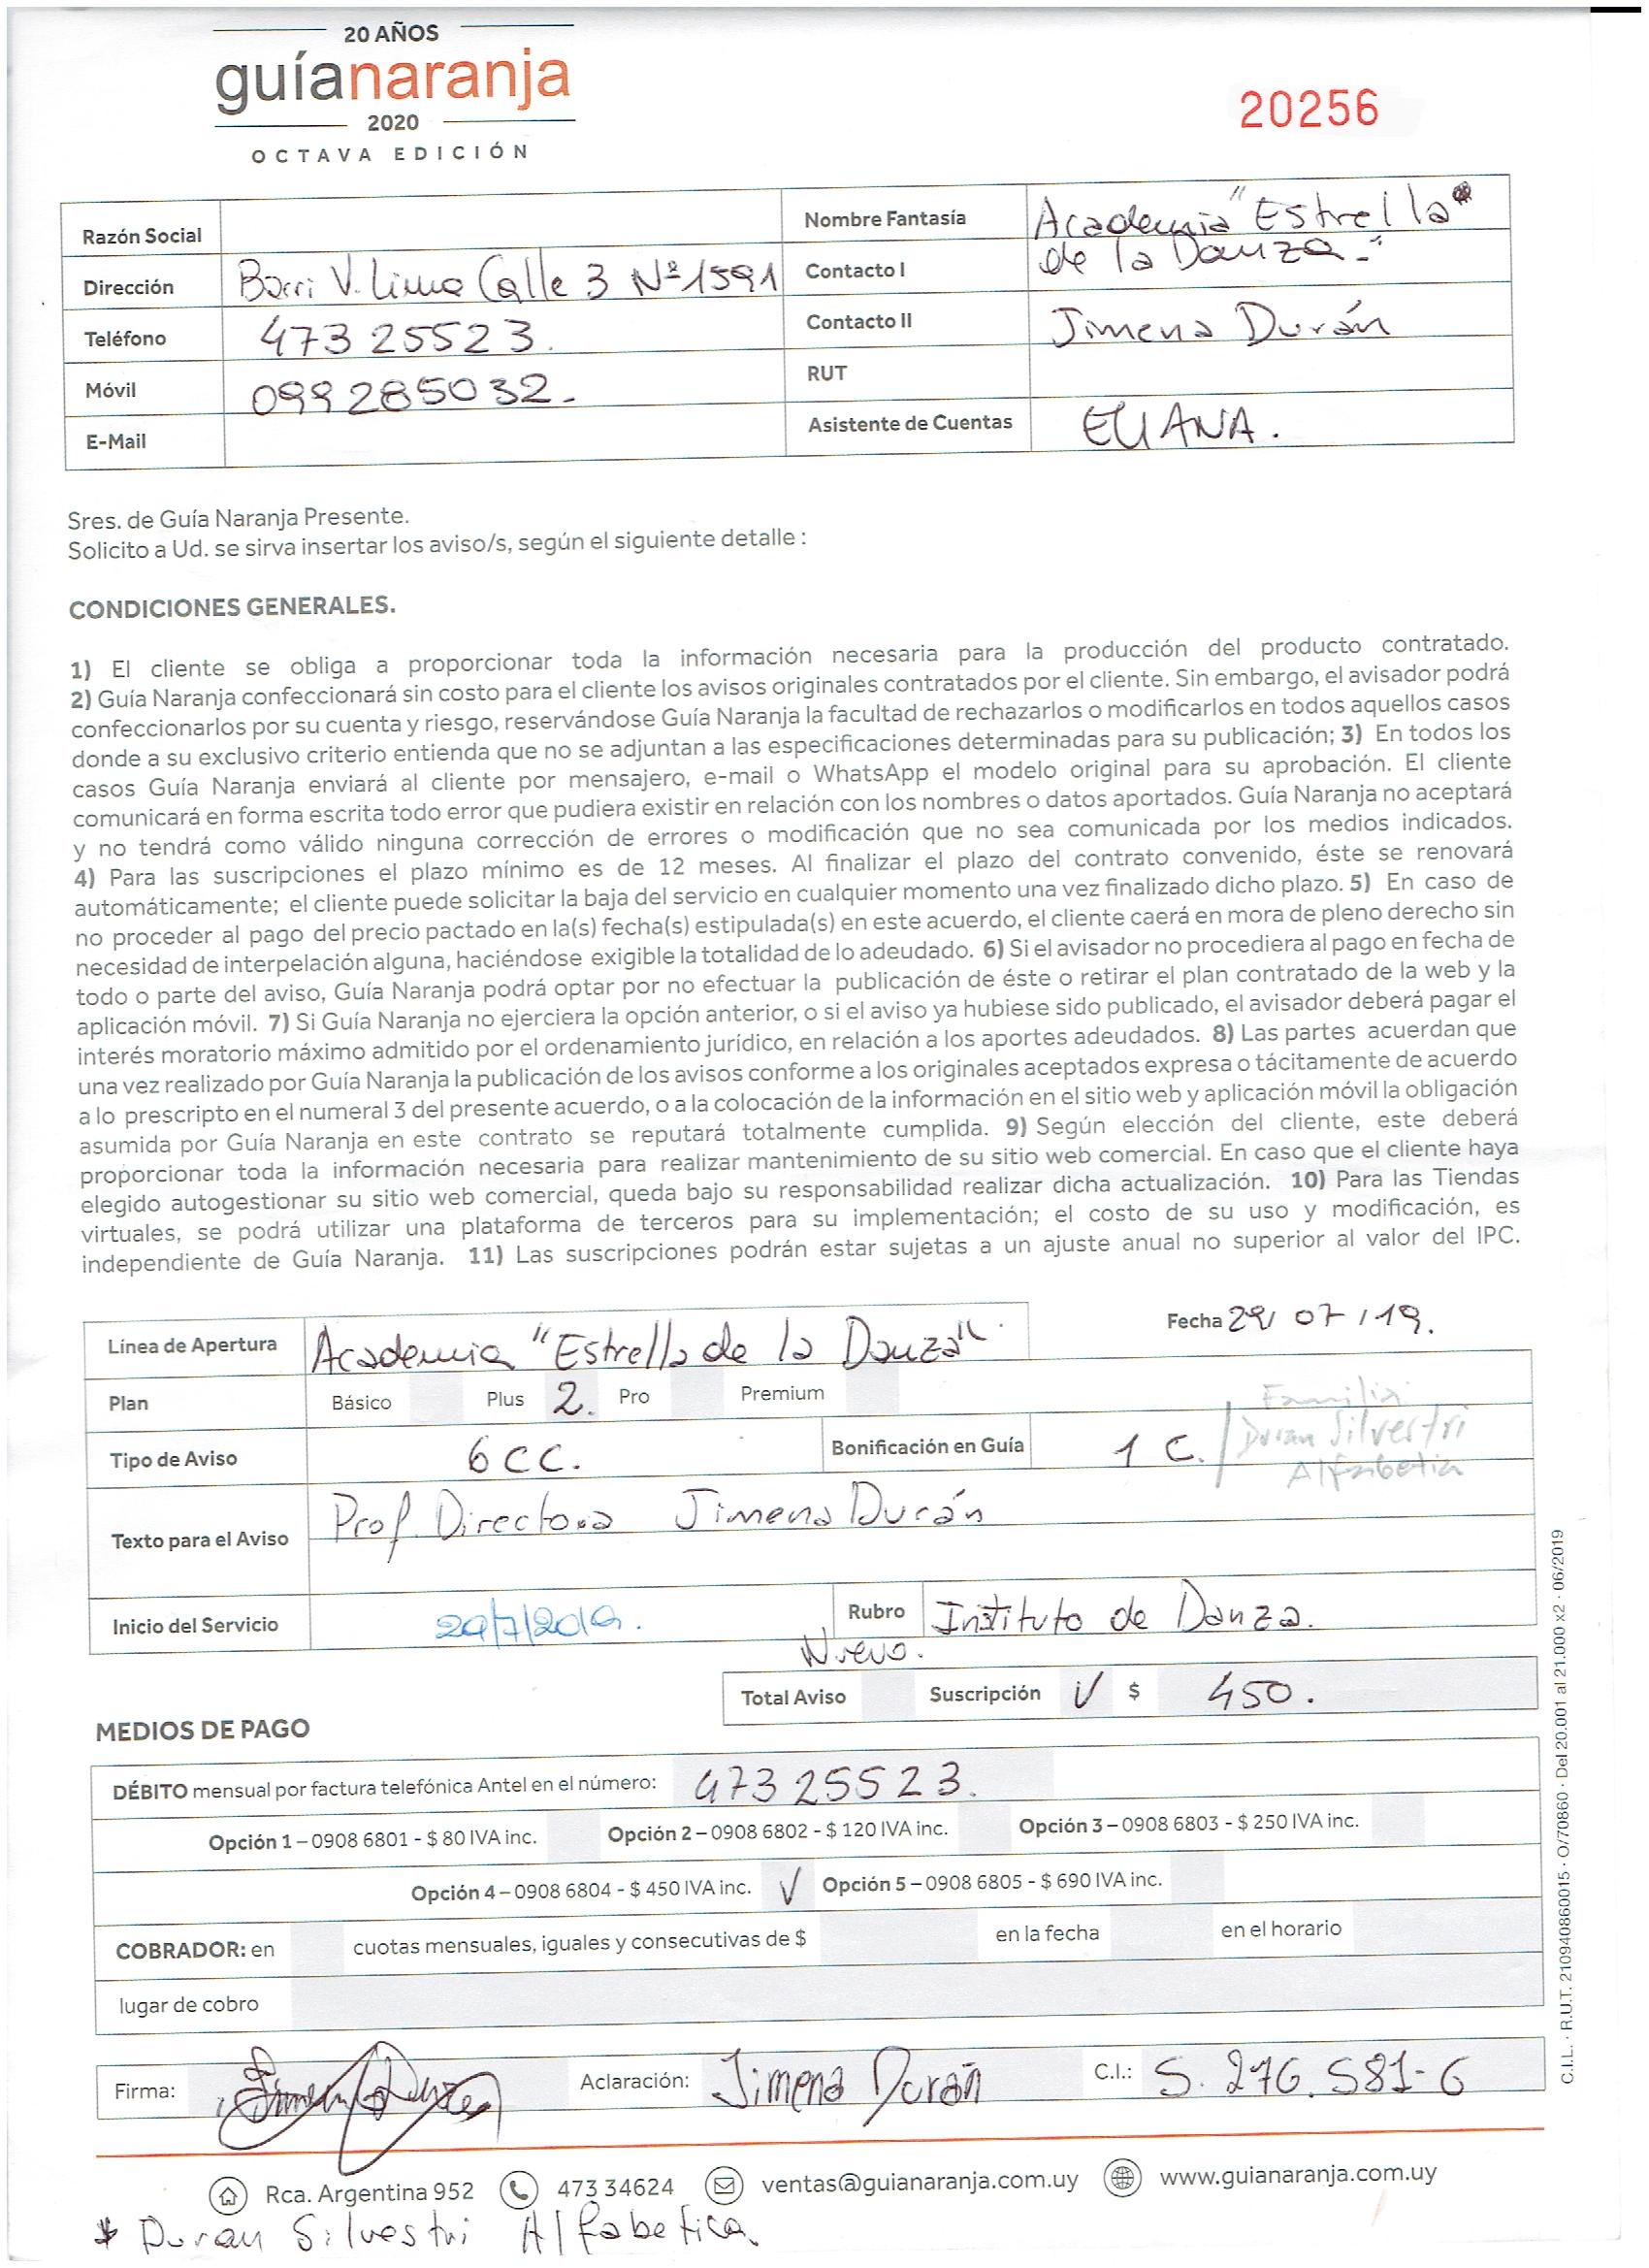 20 AÑOS
guíanaranja
2020
OCTAVA EDICIÓN
20256
Razón Social
Nombre Fantasía Academia "Estrella"
de la Danza.-
Dirección Barri V. Lima Calle 3 Nº 1591
Contacto I
Teléfono 473 25523.
Contacto II Jimena Durán
Móvil 099285032.
RUT
E-Mail
Asistente de Cuentas ELIANA.
Sres. de Guía Naranja Presente.
Solicito a Ud. se sirva insertar los aviso/s, según el siguiente detalle :
CONDICIONES GENERALES.
1) El cliente se obliga a proporcionar toda la información necesaria para la producción del producto contratado.
2) Guía Naranja confeccionará sin costo para el cliente los avisos originales contratados por el cliente. Sin embargo, el avisador podrá
confeccionarlos por su cuenta y riesgo, reservándose Guía Naranja la facultad de rechazarlos o modificarlos en todos aquellos casos
donde a su exclusivo criterio entienda que no se adjuntan a las especificaciones determinadas para su publicación; 3) En todos los
casos Guía Naranja enviará al cliente por mensajero, e-mail o WhatsApp el modelo original para su aprobación. El cliente
comunicará en forma escrita todo error que pudiera existir en relación con los nombres o datos aportados. Guía Naranja no aceptará
y no tendrá como válido ninguna corrección de errores o modificación que no sea comunicada por los medios indicados.
4) Para las suscripciones el plazo mínimo es de 12 meses. Al finalizar el plazo del contrato convenido, éste se renovará
automáticamente; el cliente puede solicitar la baja del servicio en cualquier momento una vez finalizado dicho plazo. 5) En caso de
no proceder al pago del precio pactado en la(s) fecha(s) estipulada(s) en este acuerdo, el cliente caerá en mora de pleno derecho sin
necesidad de interpelación alguna, haciéndose exigible la totalidad de lo adeudado. 6) Si el avisador no procediera al pago en fecha de
todo o parte del aviso, Guía Naranja podrá optar por no efectuar la publicación de éste o retirar el plan contratado de la web y la
aplicación móvil. 7) Si Guía Naranja no ejerciera la opción anterior, o si el aviso ya hubiese sido publicado, el avisador deberá pagar el
interés moratorio máximo admitido por el ordenamiento jurídico, en relación a los aportes adeudados. 8) Las partes acuerdan que
una vez realizado por Guía Naranja la publicación de los avisos conforme a los originales aceptados expresa o tácitamente de acuerdo
a lo prescripto en el numeral 3 del presente acuerdo, o a la colocación de la información en el sitio web y aplicación móvil la obligación
asumida por Guía Naranja en este contrato se reputará totalmente cumplida. 9) Según elección del cliente, este deberá
proporcionar toda la información necesaria para realizar mantenimiento de su sitio web comercial. En caso que el cliente haya
elegido autogestionar su sitio web comercial, queda bajo su responsabilidad realizar dicha actualización. 10) Para las Tiendas
virtuales, se podrá utilizar una plataforma de terceros para su implementación; el costo de su uso y modificación, es
independiente de Guía Naranja. 11) Las suscripciones podrán estar sujetas a un ajuste anual no superior al valor del IPC.
Fecha 29/ 07 / 19.
Línea de Apertura Academia "Estrella de la Danza".
Plan Básico Plus 2. Pro Premium
Tipo de Aviso 6 CC.
Bonificación en Guía 1 C. / Familia
Duran Silvestri
Alfabetica
Texto para el Aviso Prof. Directora Jimena Durán
Inicio del Servicio 29/7/2019.
Rubro Instituto de Danza.
Nuevo.
Total Aviso Suscripción ✓ $ 450.
MEDIOS DE PAGO
DÉBITO mensual por factura telefónica Antel en el número: 473 25523.
Opción 1 – 0908 6801 - $ 80 IVA inc. Opción 2 – 0908 6802 - $ 120 IVA inc. Opción 3 – 0908 6803 - $ 250 IVA inc.
Opción 4 – 0908 6804 - $ 450 IVA inc. ✓ Opción 5 – 0908 6805 - $ 690 IVA inc.
COBRADOR: en cuotas mensuales, iguales y consecutivas de $ en la fecha en el horario
lugar de cobro
Firma: Aclaración: Jimena Durán C.I.: 5.276.581-6
Rca. Argentina 952 473 34624 ventas@guianaranja.com.uy www.guianaranja.com.uy
* Duran Silvestri Alfabetica.
C.I.L. · R.U.T. 210940860015 · O/70860 · Del 20.001 al 21.000 x2 · 06/2019